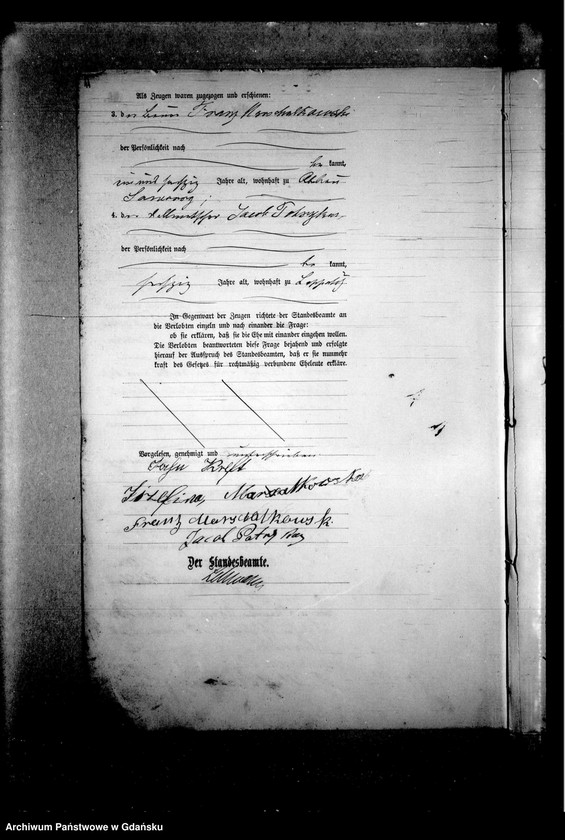 Als Zeugen waren zugezogen und erschienen:
3. der Franz Marschalkowski
der Persönlichkeit nach
be kannt,
und sechzig Jahre alt, wohnhaft zu Abbau
4. der Jacob
der Persönlichkeit nach
be kannt,
sechzig Jahre alt, wohnhaft zu
In Gegenwart der Zeugen richtete der Standesbeamte an
die Verlobten einzeln und nach einander die Frage:
ob sie erklären, daß sie die Ehe mit einander eingehen wollen.
Die Verlobten beantworteten diese Frage bejahend und erfolgte
hierauf der Ausspruch des Standesbeamten, daß er sie nunmehr
kraft des Gesetzes für rechtmäßig verbundene Eheleute erkläre.
Vorgelesen, genehmigt und unterschrieben
Kreft
Franz Marschalkowski
Jacob
Der Standesbeamte.
Archiwum Państwowe w Gdańsku